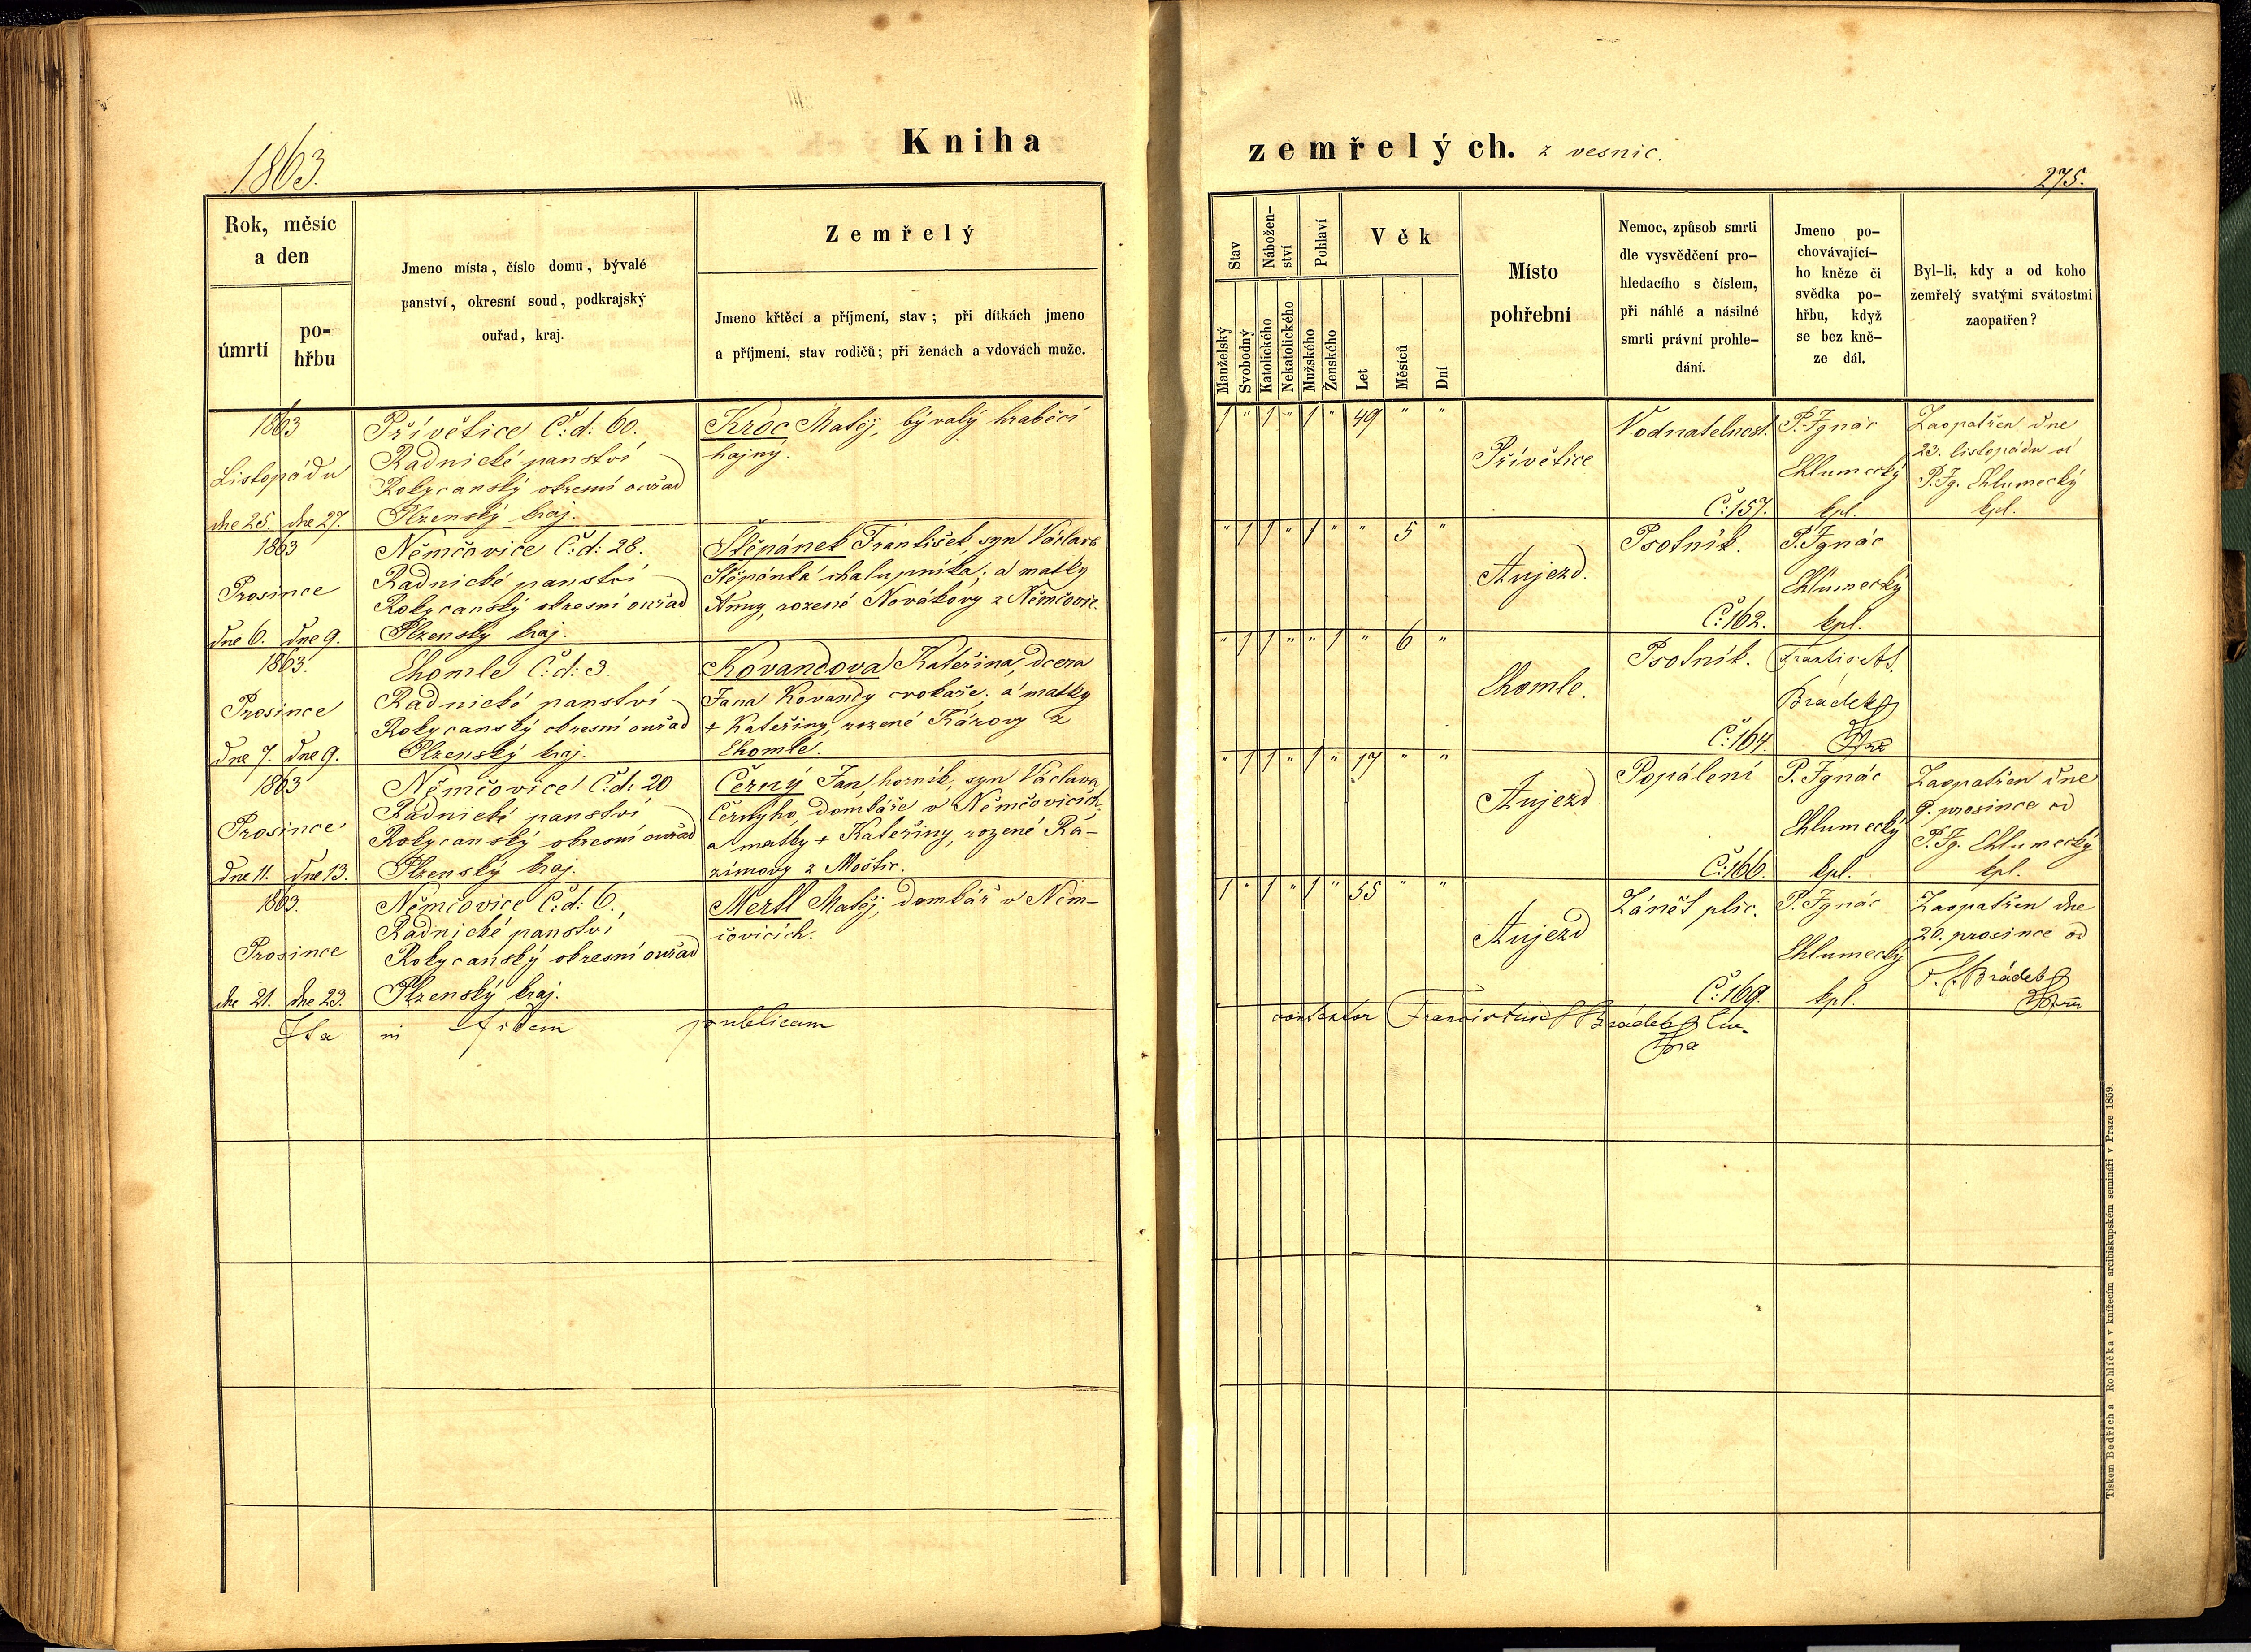 1863.
Kniha
Rok, měsíc
a den
úmrtí
po-
hřbu
Jmeno místa, číslo domu, bývalé
panství, okresní soud, podkrajský
ouřad, kraj.
Zemřelý
Jmeno křtěcí a příjmení, stav; při dítkách jmeno
a příjmení, stav rodičů; při ženách a vdovách muže.
1863
Listopádu
dne 25. dne 27.
Přívětice Č: d: 60.
Radnické panství
Rokycanský okresní ouřad
Plzenský kraj.
Kroc Matěj, bývalý hraběcí
hajný.
1863
Prosince
dne 6. dne 9.
Němčovice Č: d: 28.
Radnické panství
Rokycanský okresní ouřad
Plzenský kraj.
Štěpánek František, syn Václava
Štěpánka chalupníka; a matky
Anny, rozené Novákovy z Němčovic.
1863.
Prosince
dne 7. dne 9.
Chomle Č: d: 3.
Radnické panství
Rokycanský okresní ouřad
Plzenský kraj.
Kovandova Kateřina, dcera
Jana Kovandy cvokaře; a matky
+ Kateřiny, rozené Kázovy z
Chomle.
1863
Prosince
dne 11. dne 13.
Němčovice Č: d: 20
Radnické panství
Rokycanský okresní ouřad
Plzenský kraj.
Černý Jan, horník, syn Václava
Černýho, domkáře v Němčovicích,
a matky + Kateřiny, rozené Rá-
zímovy z Moštic.
1863.
Prosince
dne 21. dne 23.
Němčovice Č: d: 6.
Radnické panství
Rokycanský okresní ouřad
Plzenský kraj.
Mertl Matěj, domkář v Něm-
čovicích.
Ita in fidem publicam
zemřelých. z vesnic.
275.
Stav
Nábožen-
ství
Pohlaví
Věk
Manželský
Svobodný
Katolického
Nekatolického
Mužského
Ženského
Let
Měsíců
Dní
Místo
pohřební
Nemoc, způsob smrti
dle vysvědčení pro-
hledacího s číslem,
při náhlé a násilné
smrti právní prohle-
dání.
Jmeno po-
chovávající-
ho kněze či
svědka po-
hřbu, když
se bez kně-
ze dál.
Byl-li, kdy a od koho
zemřelý svatými svátostmi
zaopatřen?
1 " 1 " 1 " 49 " "
Přívětice
Vodnatelnost.
Č: 157.
P. Ignác
Chlumecký
kpl.
Zaopatřen dne
23. listopádu od
P. Ig. Chlumecký
kpl.
" 1 1 " 1 " " 5 "
Aujezd.
Psotník.
Č: 162.
P. Ignác
Chlumecký
kpl.
" 1 1 " " 1 " 6 "
Chomle.
Psotník.
Č: 164.
František
Brádek
" 1 1 " 1 " 17 " "
Aujezd
Popálení
Č: 166.
P. Ignác
Chlumecký
kpl.
Zaopatřen dne
9. prosince od
P. Ig. Chlumecký
kpl.
1 " 1 " 1 " 55 " "
Aujezd
Zánět plic.
Č: 169.
P. Ignác
Chlumecký
kpl.
Zaopatřen dne
20. prosince od
Brádek
Brádek
Tiskem Bedřicha Rohlíčka v knížecím arcibiskupském semináři v Praze 1859.